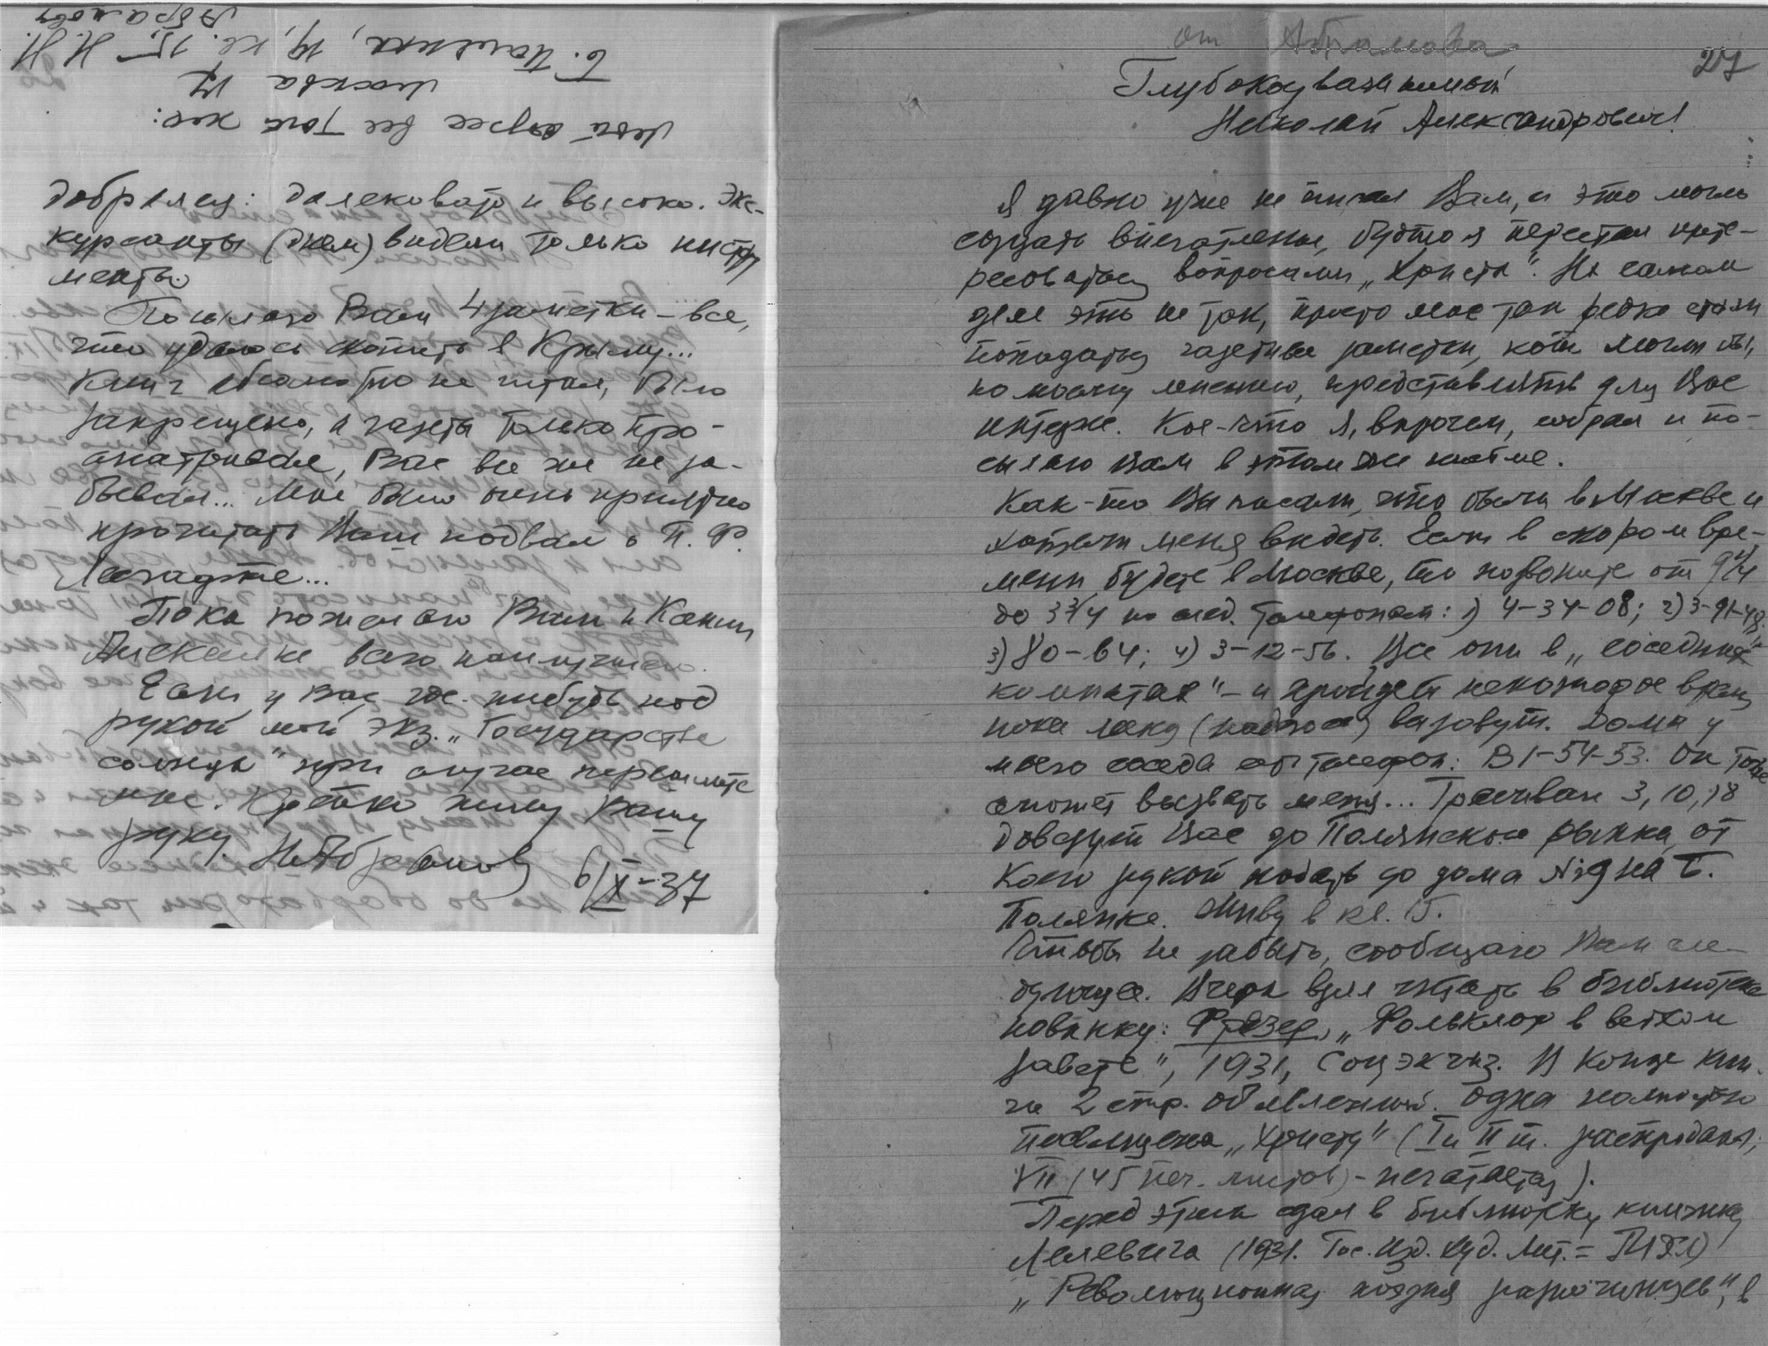 Мой адрес все тот же:
Москва 17
Б. Полянка, 19, кв. 15 Н. Н.
Абрамову
добрался: далековато и высоко. Экс-
курсанты (днем) видели только инстру
менты.
Посылаю Вам 4 заметки – все,
что удалось скопить в Крыму...
Книг абсолютно не читал, было
запрещено, а газеты только про-
сматривал, Вас все же не за-
бывал... Мне было очень приятно
прочитать Ваш подвал о П. Ф.
Лесгафте...
Пока пожелаю Вам и Ксении
Алексеевне всего наилучшего.
Если у Вас где-нибудь под
рукой мой экз. „Государства
солнца" при случае перешлите
мне. Крепко жму Вашу
руку. Н. Абрамов
6/X-37
от Абрамова
27
Глубокоуважаемый
Николай Александрович!
Я давно уже не писал Вам, и это могло
создать впечатление, будто я перестал инте-
ресоваться вопросами „Христа". На самом
деле это не так, просто мне так редко стали
попадаться газетные заметки, кот. могли бы,
по моему мнению, представлять для Вас
интерес. Кое-что я, впрочем, собрал и по-
сылаю Вам в этом же письме.
Как-то Вы писали, что были в Москве и
хотели меня видеть. Если в скором вре-
мени будете в Москве, то позвоните от 9 1/4
до 3 3/4 по след. телефонам: 1) 4-34-08; 2) 3-91-48;
3) 80-64; 4) 3-12-56. Все они в „соседних
комнатах" – и пройдет некоторое время,
пока меня вызовут. Дома у
моего соседа есть телефон: В 1-54-53. Он тоже
сможет вызвать меня... Трамваи 3, 10, 18
довезут Вас до Полянского рынка, от
коего рукой подать до дома № 9 на Б.
Полянке. Живу в кв. 15.
Чтобы не забыть, сообщаю Вам сле-
дующее. Вчера взял читать в библиотеке
новинку: Фрэзер, „Фольклор в ветхом
завете", 1931, Соцэкгиз. В конце кни-
ги 2 стр. объявлений. Одна полностью
посвящена „Христу" (I и II т. распроданы,
VII (45 печ. листов) – печатается).
Перед этим сдал в библиотеку книжку
Лелевича (1931. Гос. Изд. Худ. Лит. = ГИХЛ)
„Революционная поэзия разночинцев", в